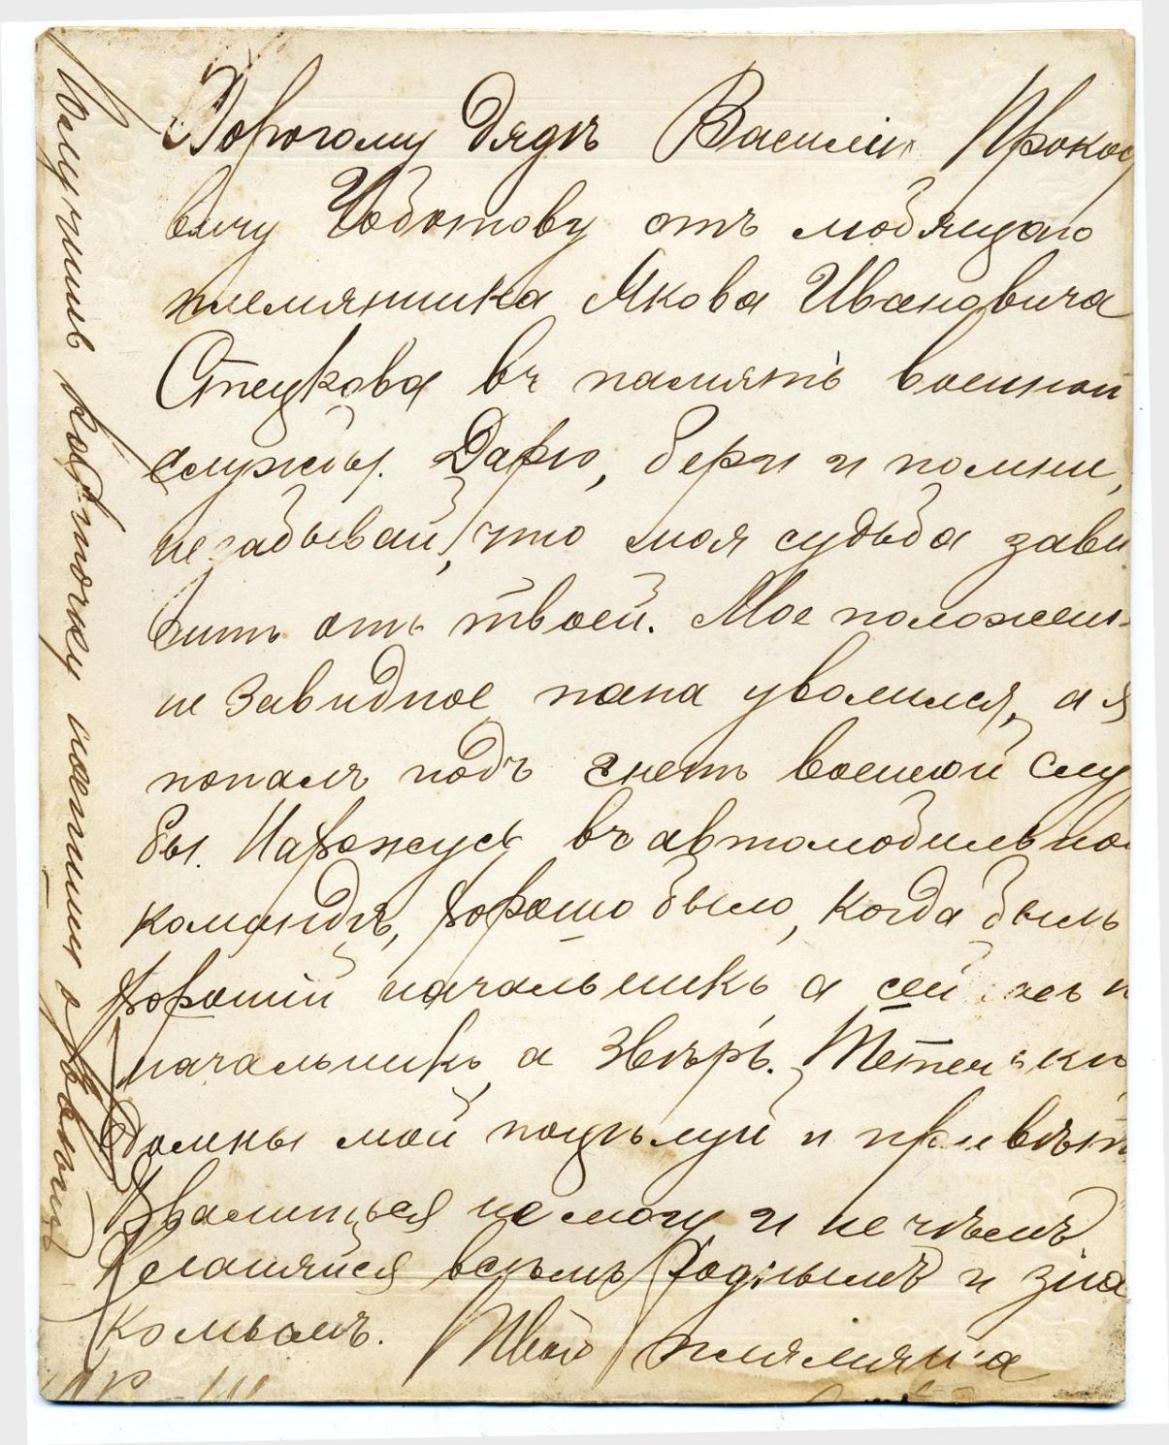 Дорогому дядѣ Василiю Прокоф
вичу Чоботову отъ любящаго
племянника Якова Ивановича
Стецкова въ память военной
службы. Дарю, бери и помни,
незабывай, что моя судьба зави
ситъ отъ твоей. Мое положен-
не завидное папа уволился, а я
попалъ подъ гнетъ военной слу
бы. Нахожусь въ автомобильно
командѣ, хорошо было, когда былъ
хорошiй начальникъ, а сейчасъ н
начальникъ, а звѣрь. Тетеньки
Домны мой поцѣлуй и привѣт
Хвалиться не могу и не чѣмъ
Кланяйся всѣмъ роднымъ и зна
комымъ. Твой племянника
Получишь карточку